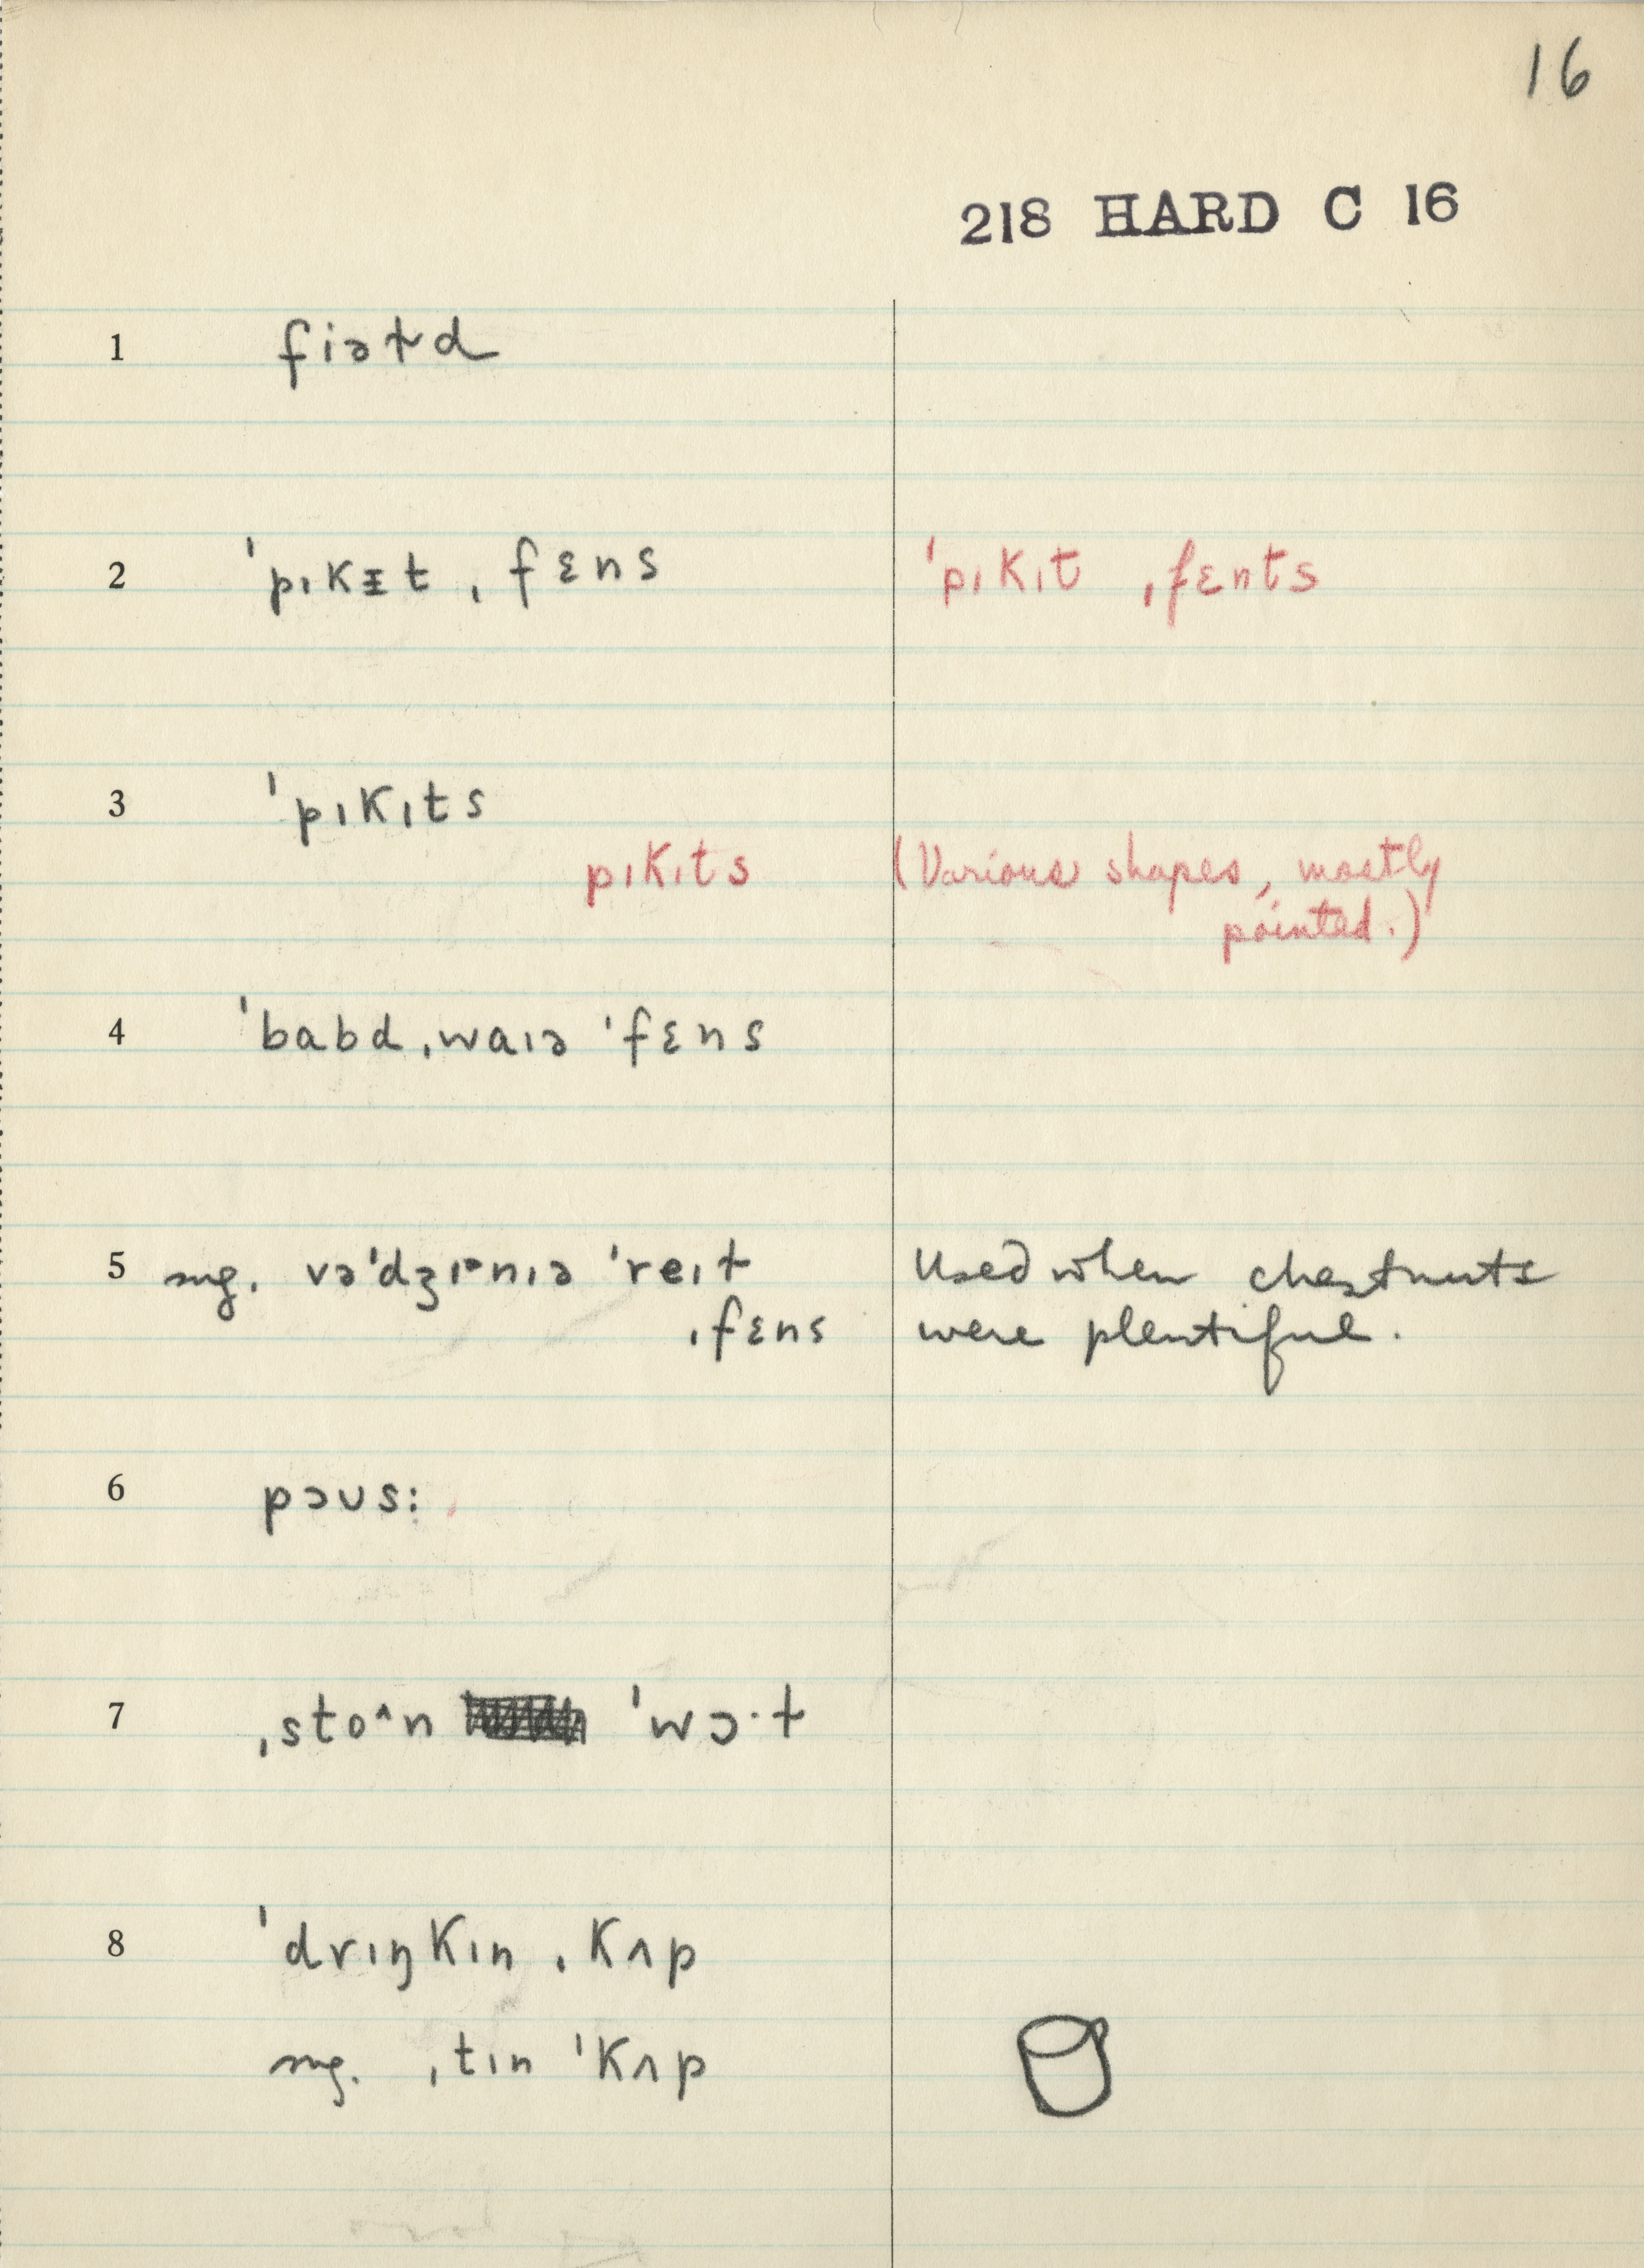 16
218 HARD C 16
1 fiəɫd
2 ˈpɪkᵻt ˌfɛns ˈpɪkɪt ˌfɛnts
3 ˈpɪkɪts
pɪkɪts (Various shapes, mostly
pointed.)
4 ˈbabd ˌwaɪə ˈfɛns
5 sug. vəˈdʒɪnɪə ˈreɪɫ Used when chestnuts
ˌfɛns were plentiful.
6 pɔʊs:
7 ˌsto^n ˈwɔ·ɫ
8 ˈdrɪŋkɪn ˌkʌp
sug. ˌtɪn ˈkʌp